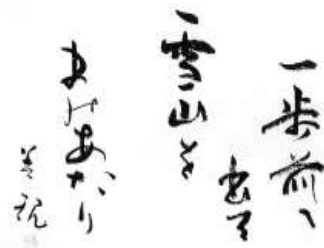 一歩前へ
出て
雪山を
まのあたり